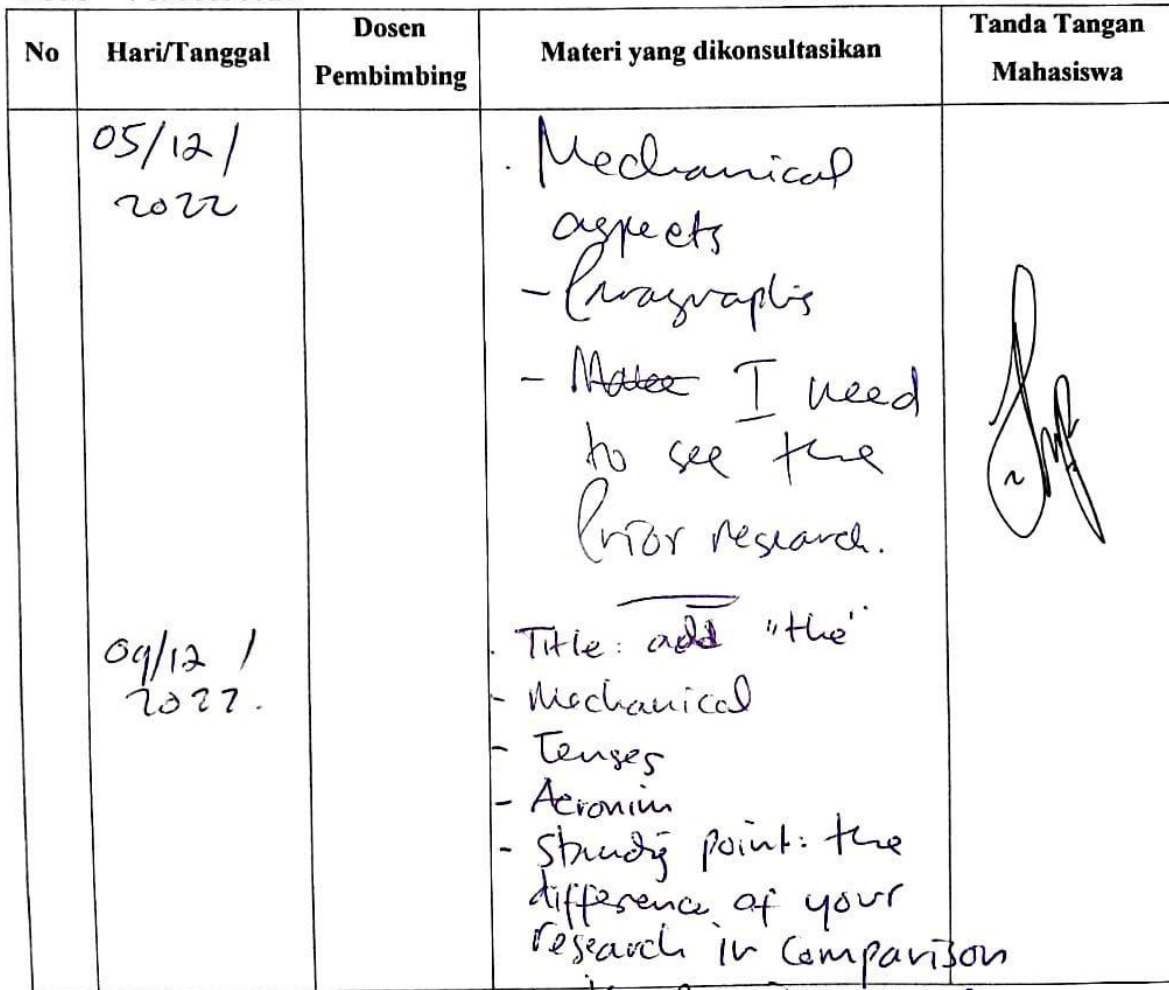 No Hari/Tanggal Dosen Pembimbing Materi yang dikonsultasikan Tanda Tangan Mahasiswa
05/12/
2022
. Mechanical
aspects
- Paragraphs
- I need
to see the
Prior research.
09/12/
2022.
. Title: add "the"
- Mechanical
- Tenses
- Acronim
- point: the
difference of your
research in Comparison